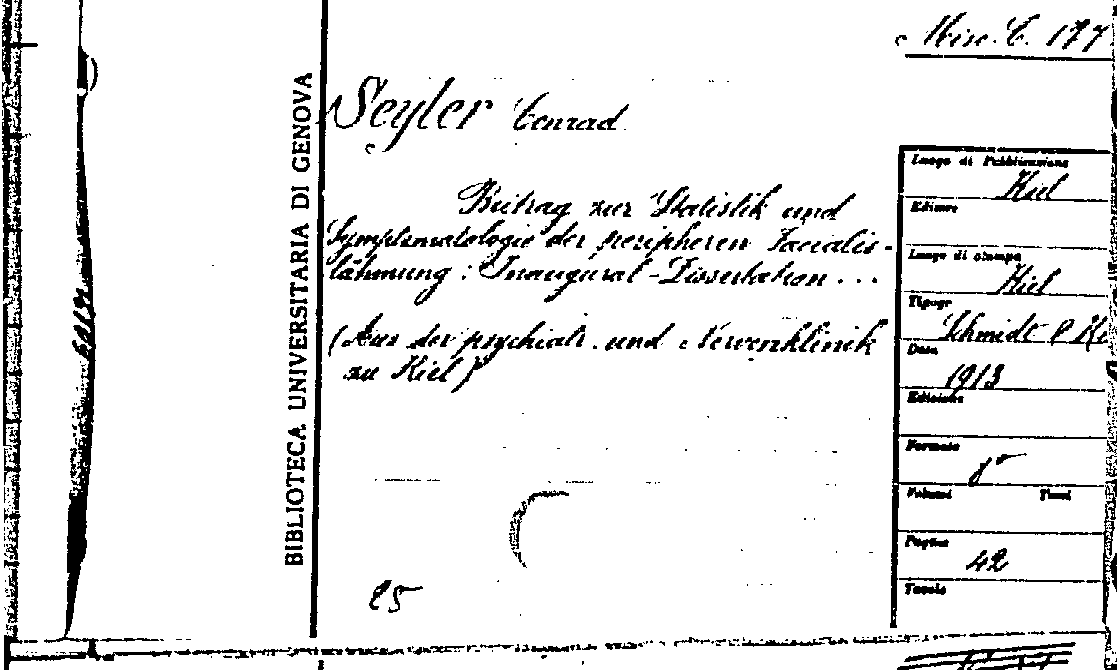 Misc. C. 197
BIBLIOTECA UNIVERSITARIA DI GENOVA
Seyler Conrad
Beitrag zur Statistik und
Symptomatologie der peripheren Facialis-
lähmung : Inaugural-Dissertation ...
(Aus der psychiatr. und Nervenklinik
zu Kiel)
25
Luogo di Pubblicazione
Kiel
Editore
Luogo di stampa
Kiel
Tipogr
Schmidt & Kl
Data
1913
Edizione
Formato
8°
Volumi Tomi
Pagine
42
Tavole